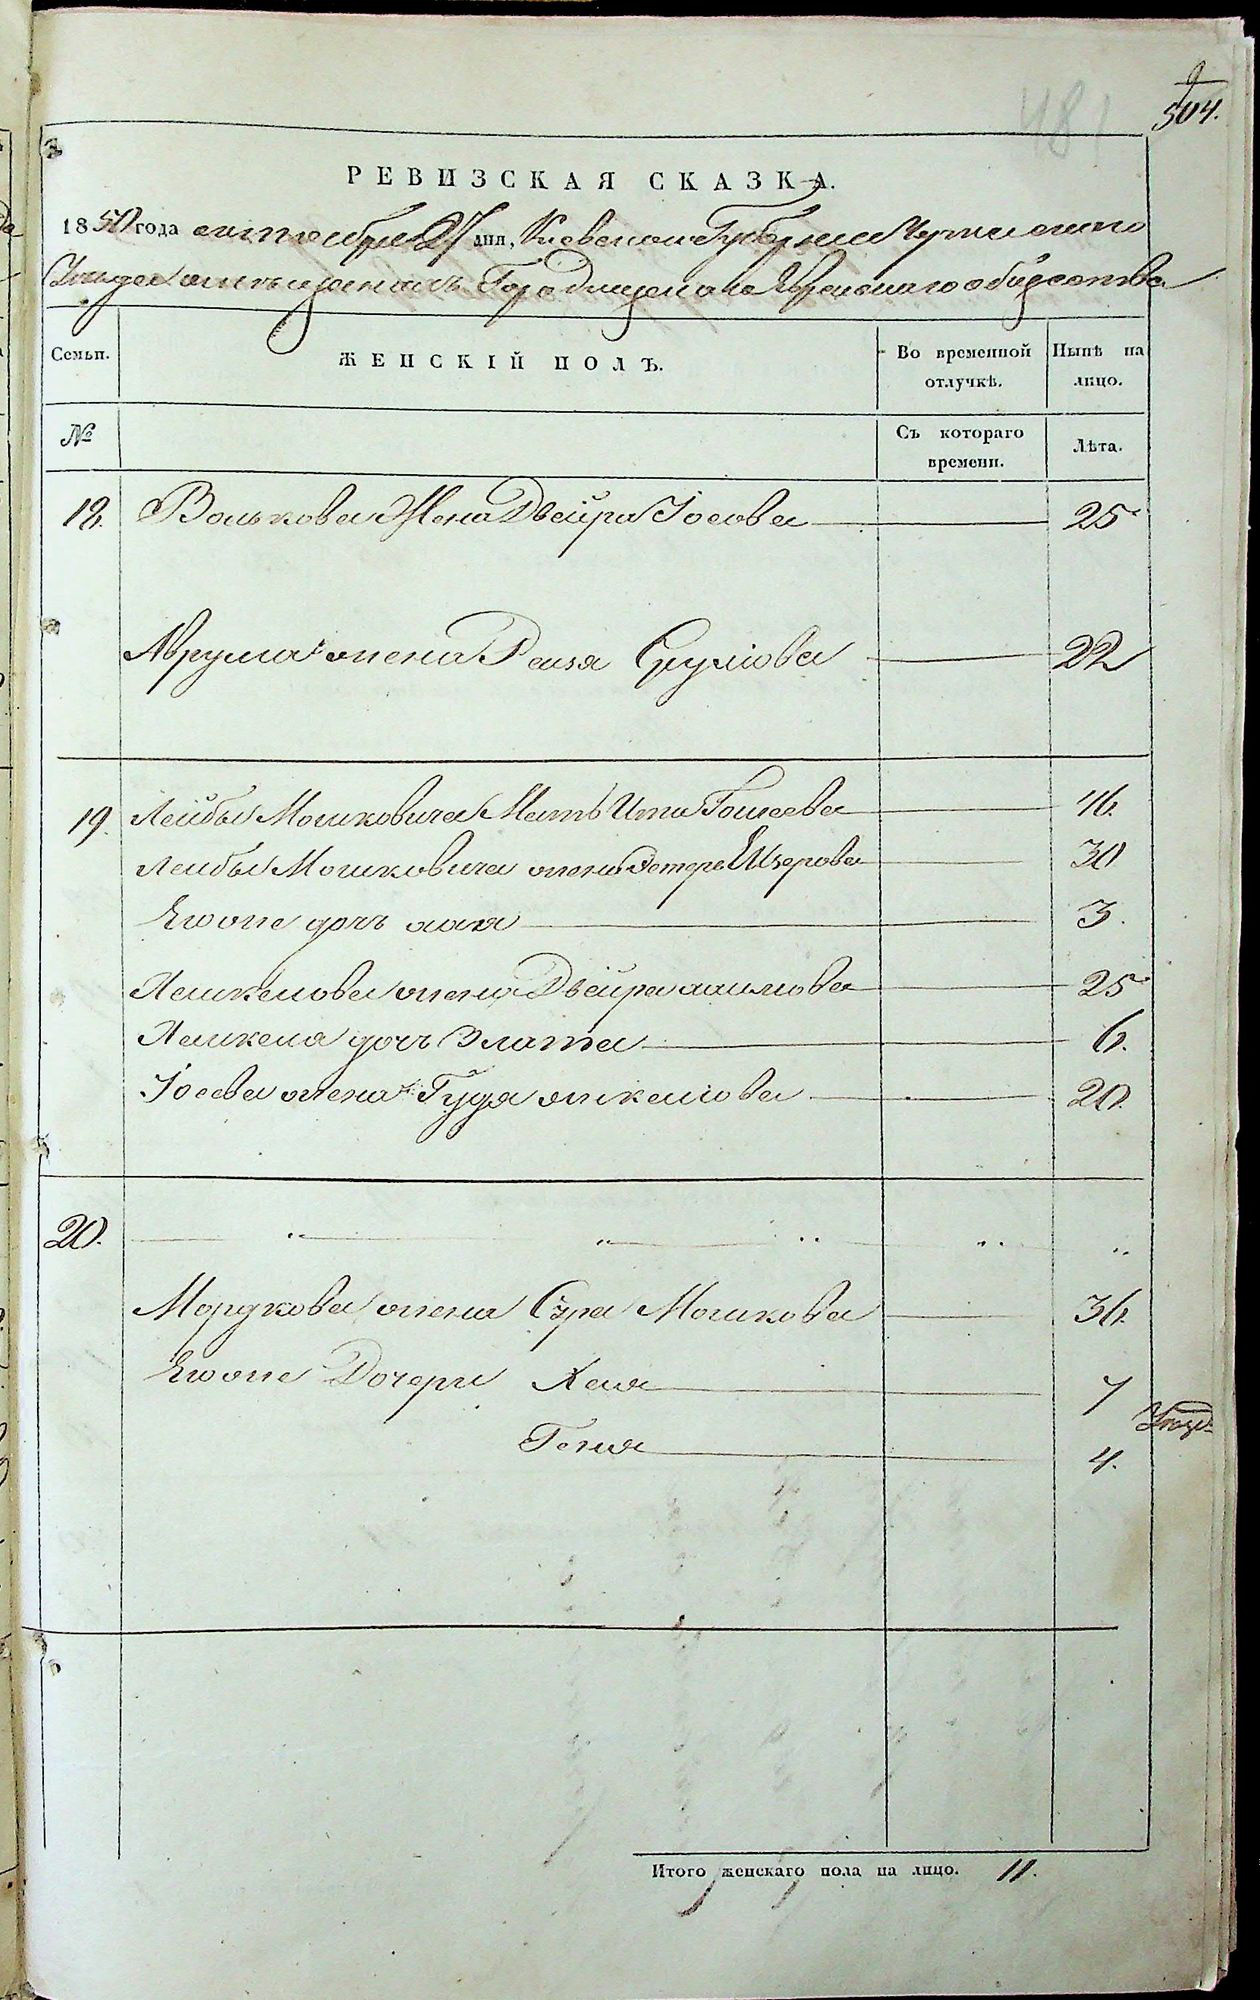 9
504.
481
РЕВИЗСКАЯ СКАЗКА.
1850 года октября 27 дня, Киевской Губернии Черкаского
Уезда мещанахъ Городищенскаго Еврейскаго общества
Семьи. ЖЕНСКІЙ ПОЛЪ. Во временной отлучкѣ. Нынѣ на лицо.
№ Съ котораго времени. Лѣта.
18. Волькова Жена Двейра Іосова 25
Аврума жена Рейзя Срулiова 22
19. Лейбы Мошковича Мать Ита Іошеева 46.
Лейбы Мошковича жена Эстера Елизерова 30
Егоже дочь хая 3.
Янкелова жена Двейра хаимова 25
Янкеля дочь Злата 6.
Іосева жена Гудя янкелiова 20.
20. " " " " "
Мордкова жена Сура Мошкова 36.
Егоже Дочери Хая 7
Геня 4.
Итого женскаго пола на лицо. 11.